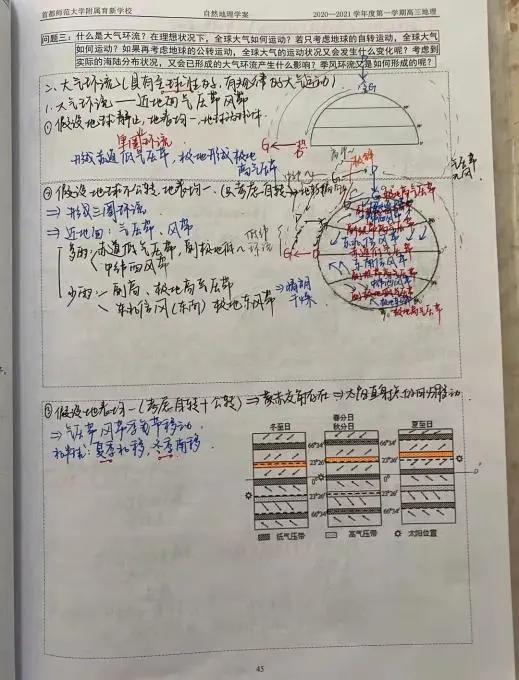 首都师范大学附属育新学校 自然地理学案 2020—2021学年度第一学期高三地理
问题三：什么是大气环流？在理想状况下，全球大气如何运动？若只考虑地球的自转运动，全球大气
如何运动？如果再考虑地球的公转运动，全球大气的运动状况又会发生什么变化呢？考虑到
实际的海陆分布状况，又会已形成的大气环流产生什么影响？季风环流又是如何形成的呢？
二、大气环流（具有全球性的，有规律的大气运动）
1.大气环流——近地面气压带风带
①假设地球静止，地表均一
单圈环流
形成赤道低气压带，极地形成极地
高气压带
②假设地球不公转，地表均一（只考虑自转）
⇒形成三圈环流
⇒近地面：气压带、风带
多雨：赤道低气压带，副极地低~
中纬西风带
少雨：副高、极地高气压带
东北信风（东南）极地东风带
⇒晴朗
干燥
低纬
环流
G←热
极地高气压带
东北信风带
赤道低气压带
东南信风带
中纬西风带
极地高气压带
③假设地表均一（考虑自转+公转）⇒黄赤交角存在⇒太阳直射点的回归移动
⇒气压带风带季节移动
北半球：夏季北移，冬季南移
冬至日 春分日 夏至日
秋分日
66°34′ 66°34′
23°26′ 23°26′
0° 0°
23°26′ 23°26′
66°34′ 66°34′
低气压带 高气压带 太阳位置
45